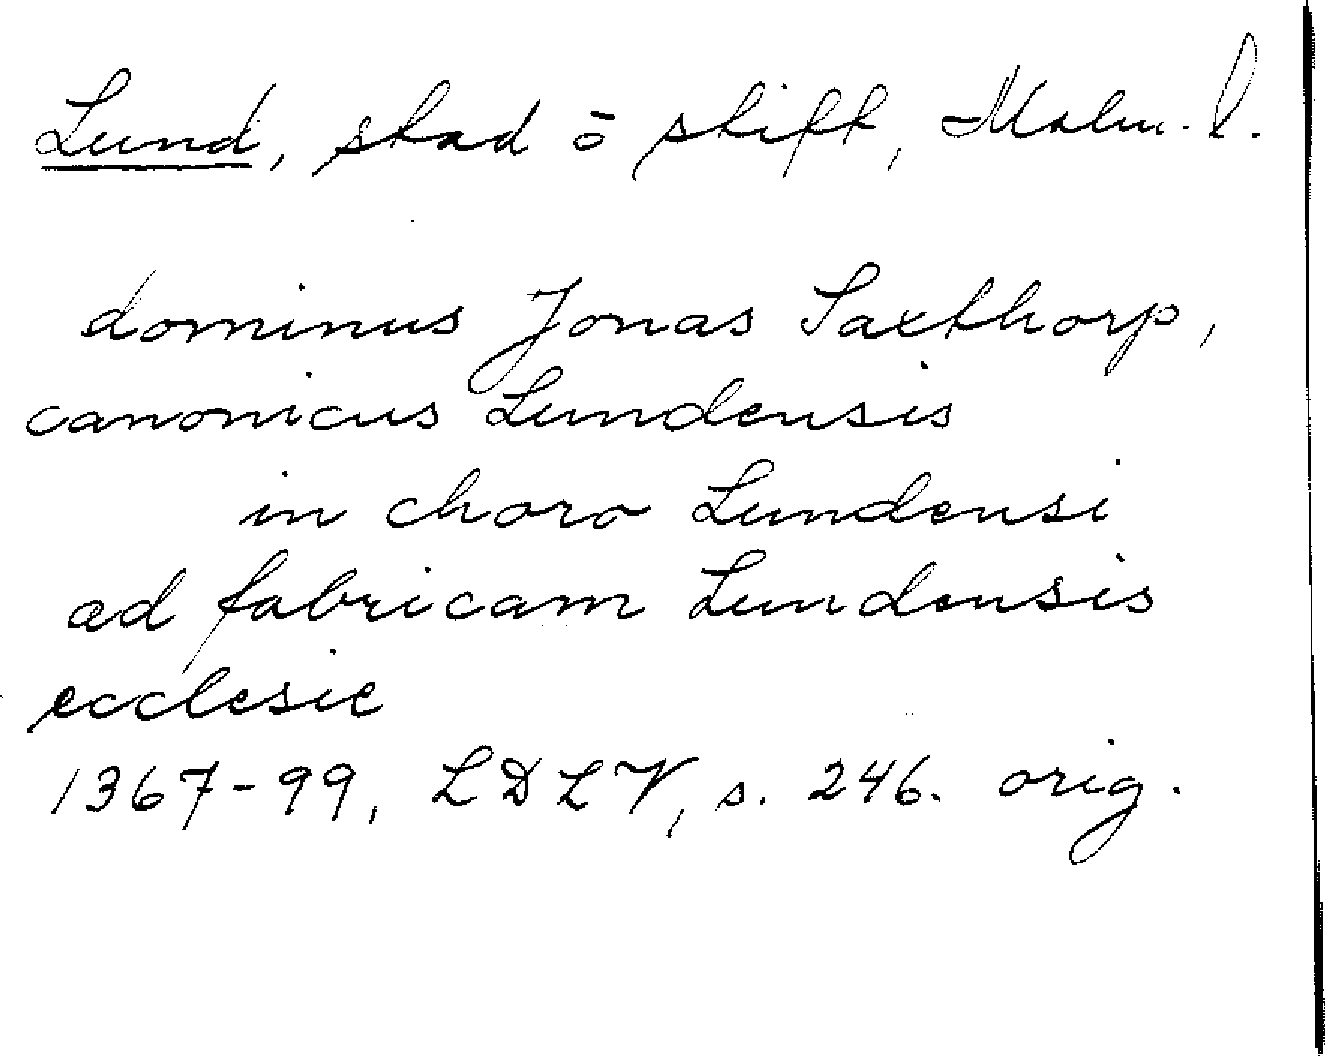 Lund, stad ō stift, Malm. l.
dominus Jonas Saxthorp,
canonicus Lundensis
in choro Lundensi
ad fabricam Lundensis
ecclesie
1367-99, LDLV, s. 246. orig.